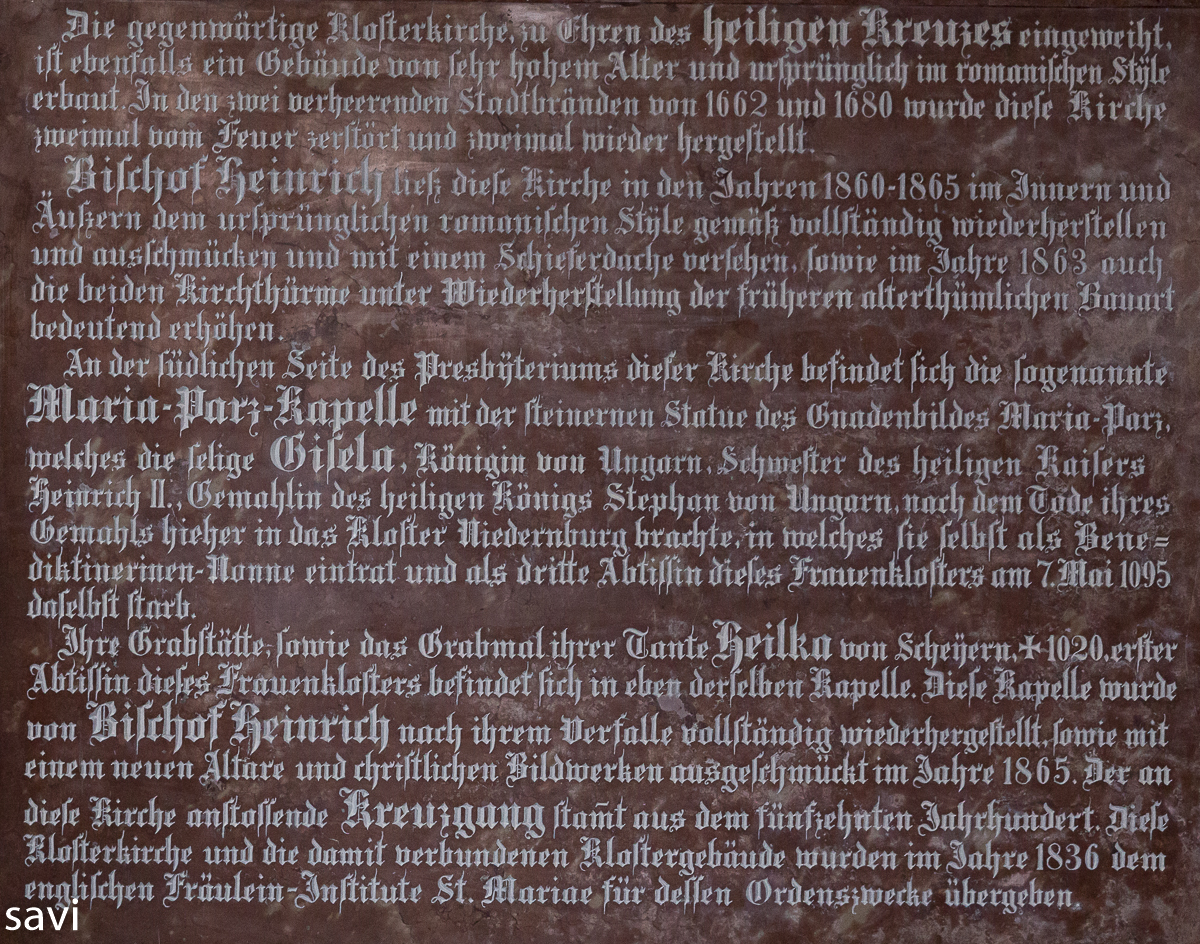 Die gegenwärtige Klosterkirche, zu Ehren des heiligen Kreuzes eingeweiht,
ist ebenfalls ein Gebäude von sehr hohem Alter und ursprünglich im romanischen Stÿle
erbaut. In den zwei verheerenden Stadtbränden von 1662 und 1680 wurde diese Kirche
zweimal vom Feuer zerstört und zweimal wieder hergestellt.
Bischof Heinrich ließ diese Kirche in den Jahren 1860-1865 im Innern und
Äußern dem ursprünglichen romanischen Stÿle gemäß vollständig wiederherstellen
und ausschmücken und mit einem Schieferdache versehen, sowie im Jahre 1863 auch
die beiden Kirchthürme unter Wiederherstellung der früheren alterthümlichen Bauart
bedeutend erhöhen.
An der südlichen Seite des Presbÿteriums dieser Kirche befindet sich die sogenannte
Maria-Parz-Kapelle mit der steinernen Statue des Gnadenbildes Maria-Parz,
welches die selige Gisela, Königin von Ungarn, Schwester des heiligen Kaisers
Heinrich II., Gemahlin des heiligen Königs Stephan von Ungarn, nach dem Tode ihres
Gemahls hieher in das Kloster Niedernburg brachte, in welches sie selbst als Bene=
diktinerinen-Nonne eintrat und als dritte Äbtissin dieses Frauenklosters am 7. Mai 1095
daselbst starb.
Ihre Grabstätte, sowie das Grabmal ihrer Tante Heilka von Scheÿern, ✠ 1020, erster
Äbtissin dieses Frauenklosters befindet sich in eben derselben Kapelle. Diese Kapelle wurde
von Bischof Heinrich nach ihrem Verfalle vollständig wiederhergestellt, sowie mit
einem neuen Altare und christlichen Bildwerken ausgeschmückt im Jahre 1865. Der an
diese Kirche anstossende Kreuzgang stam̄t aus dem fünfzehnten Jahrhundert. Diese
Klosterkirche und die damit verbundenen Klostergebäude wurden im Jahre 1836 dem
englischen Fräulein-Institute St. Mariae für dessen Ordenszwecke übergeben.
savi